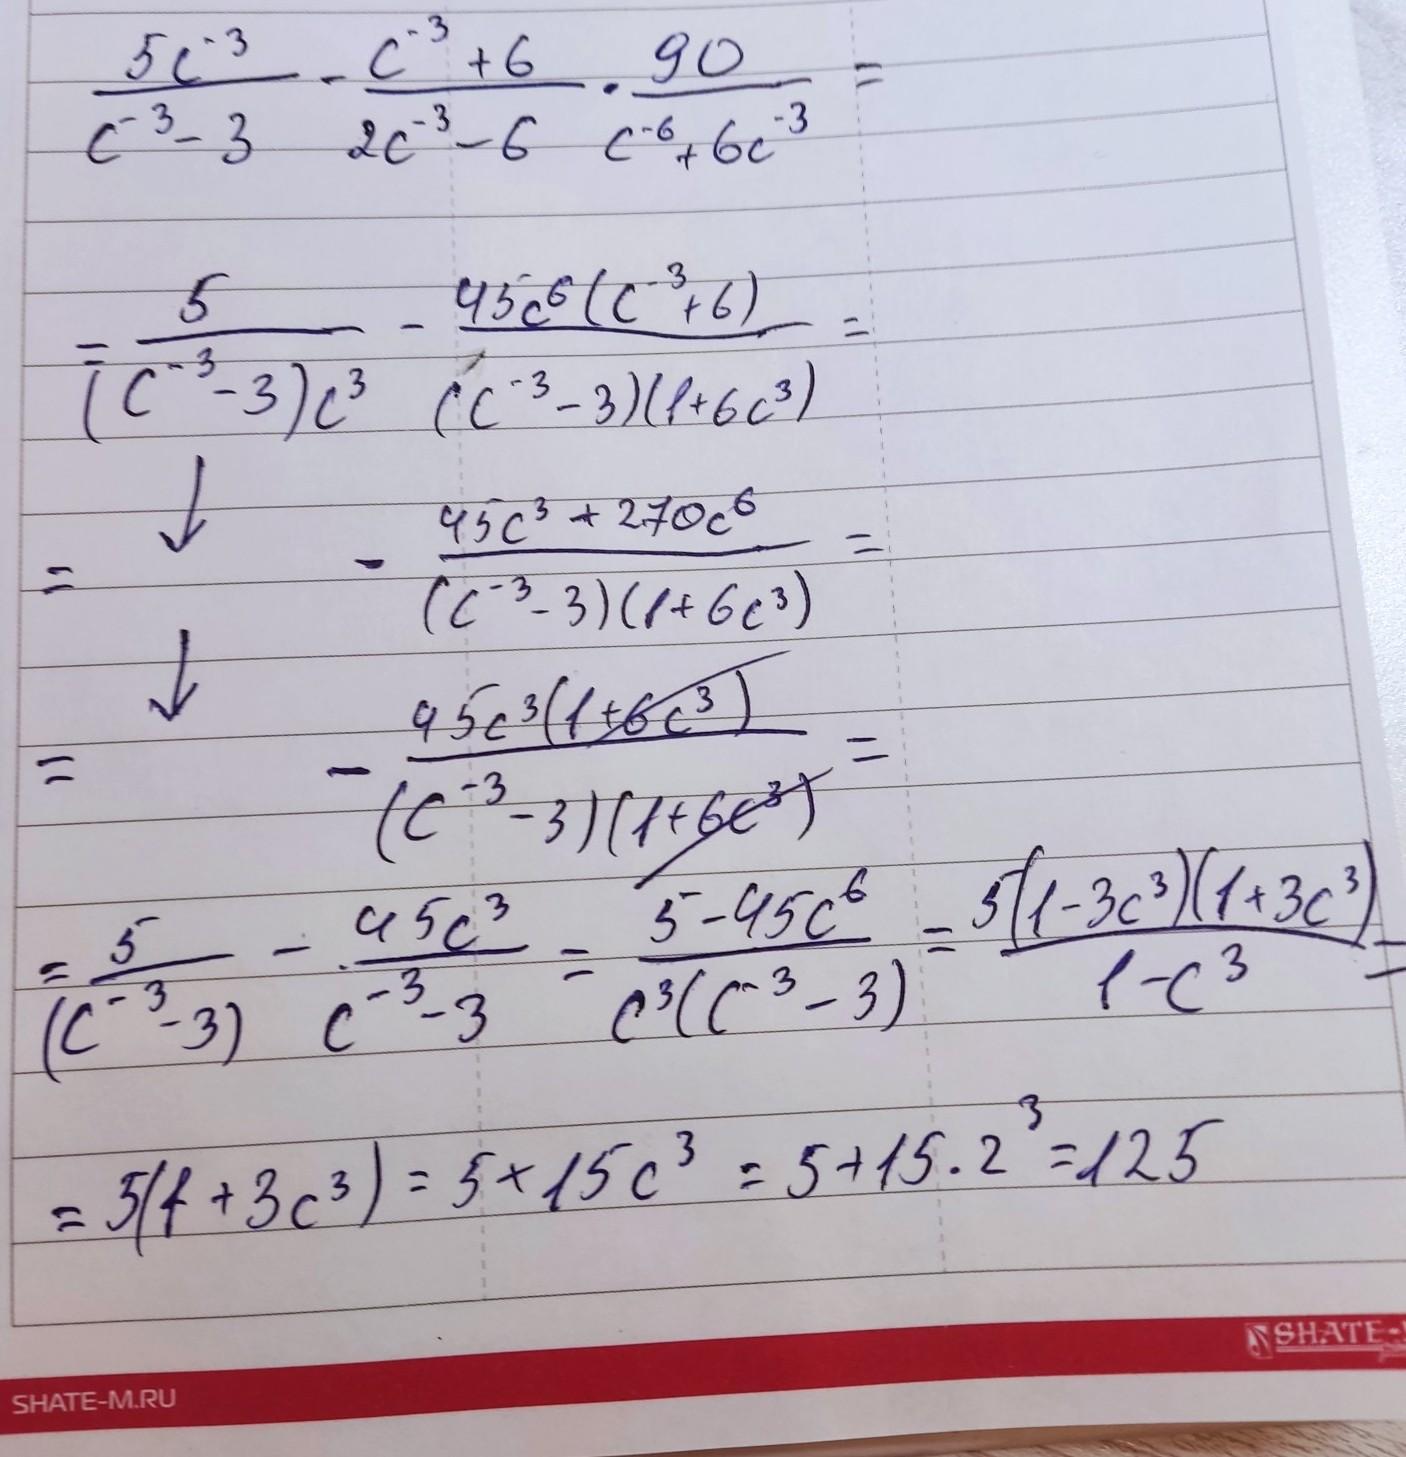 5c⁻³/(c⁻³ - 3) - (c⁻³ + 6)/(2c⁻³ - 6) · 90/(c⁻⁶ + 6c⁻³) =
= 5/((c⁻³ - 3)c³) - 45c⁶(c⁻³ + 6)/((c⁻³ - 3)(1 + 6c³)) =
= ↓ - (45c³ + 270c⁶)/((c⁻³ - 3)(1 + 6c³)) =
= ↓ - 45c³(1 + 6c³)/((c⁻³ - 3)(1 + 6c³)) =
= 5/(c⁻³ - 3) - 45c³/(c⁻³ - 3) = (5 - 45c⁶)/(c³(c⁻³ - 3)) = 5(1 - 3c³)(1 + 3c³)/(1 - c³) =
= 5(1 + 3c³) = 5 + 15c³ = 5 + 15 · 2³ = 125
SHATE-M
SHATE-M.RU